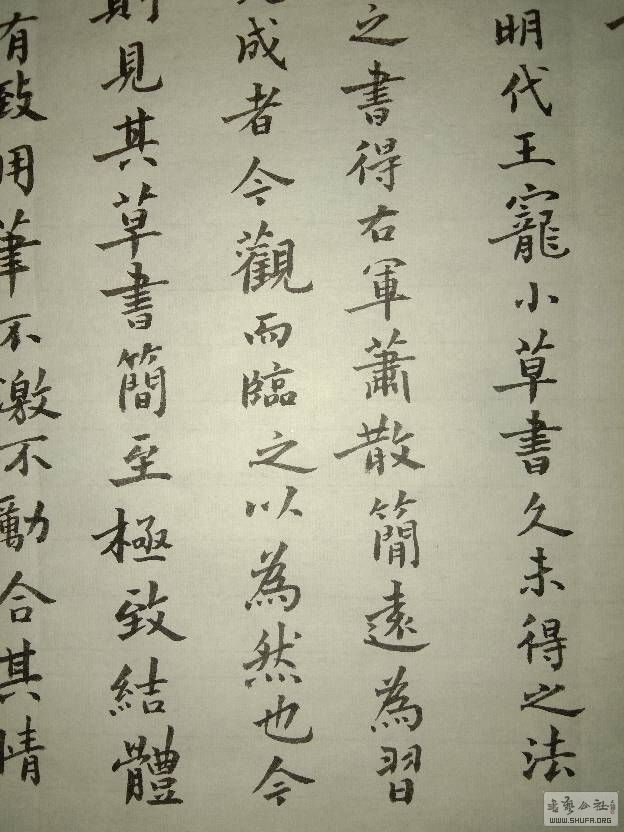 明代王寵小草書久未得之法
之書得右軍蕭散簡遠為習
成者今觀而臨之以為然也今
則見其草書簡至極致結體
有致用筆不激不動合其情
WWW.SHUFA.ORG